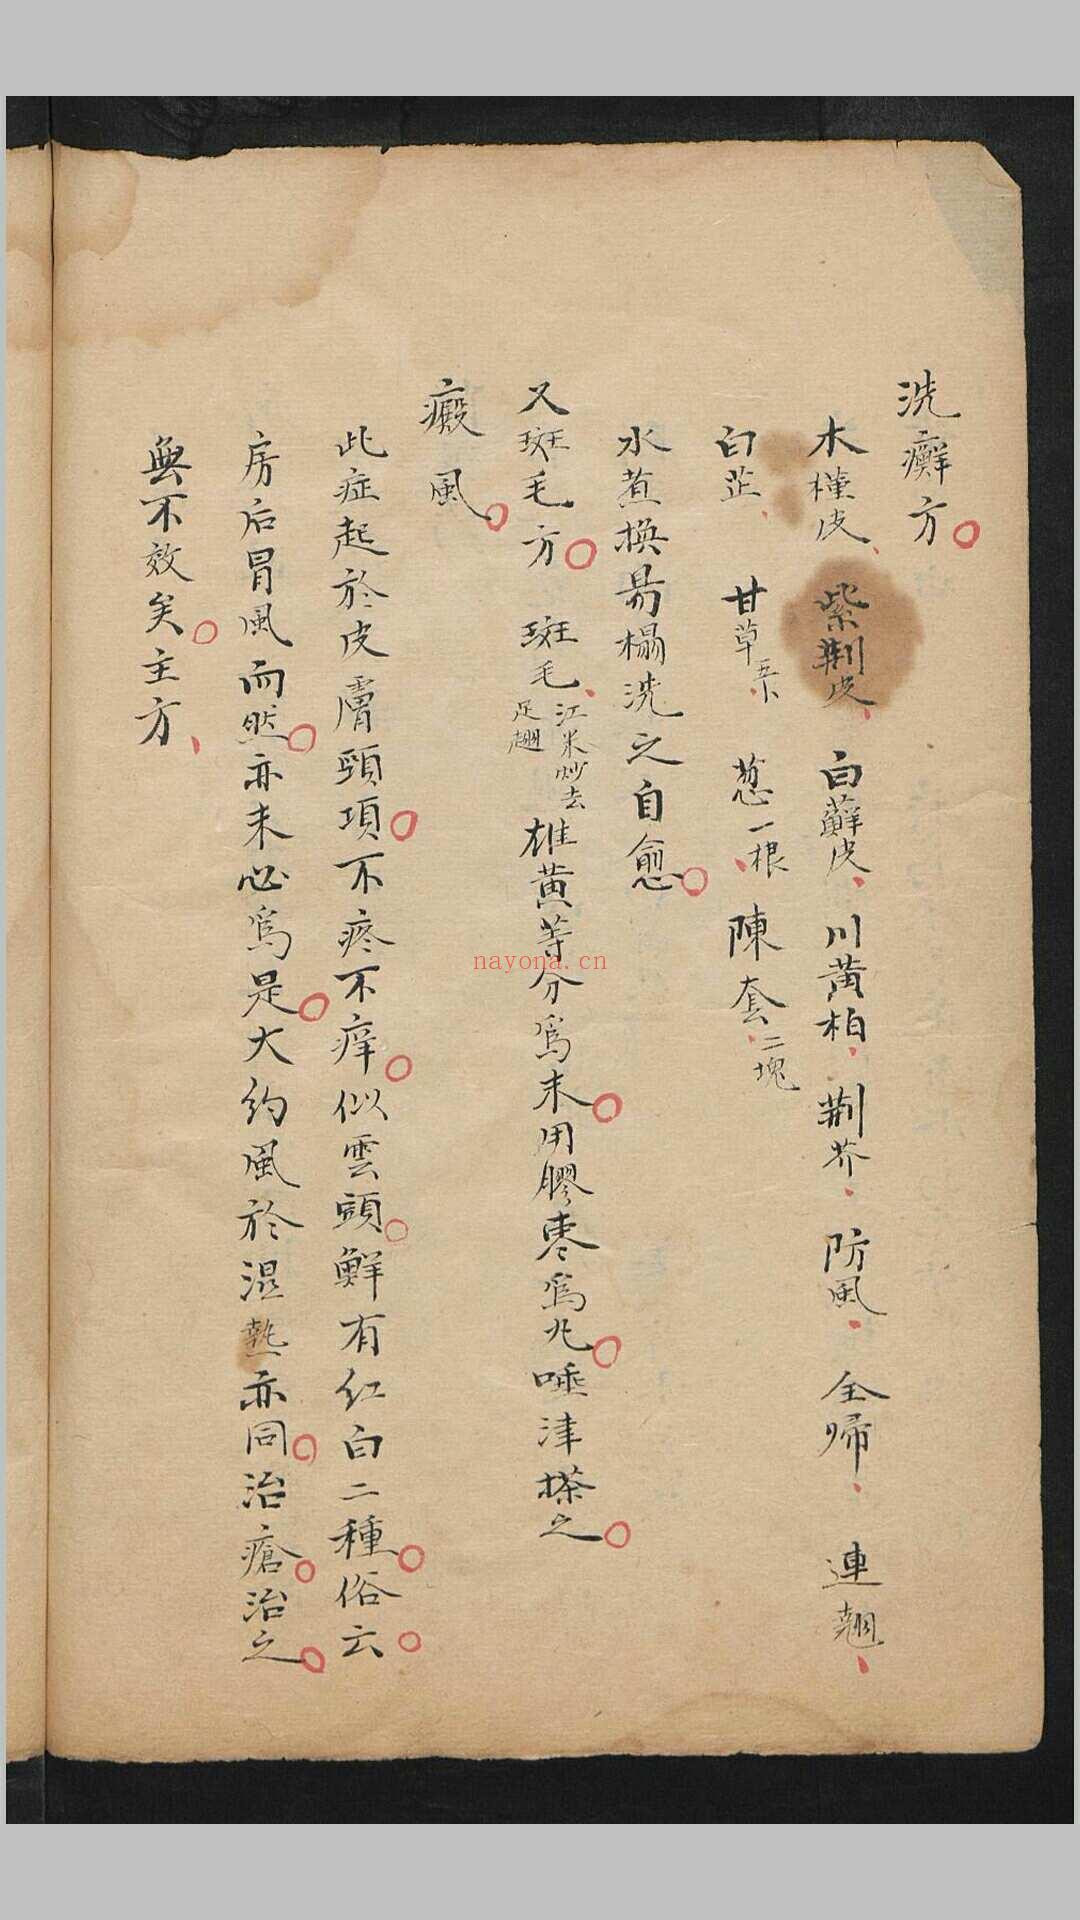 洗癬方
木槿皮 紫荆皮 白蘚皮 川黃柏 荆芥 防風 全帰 連翹
白芷 甘草 葱一根 陳套二塊
水煮換昜榻洗之自愈
又斑毛方 斑毛江米炒去足翅雄黃等分為末用膠棗為丸唾津搽之
癜風
此症起於皮膚頸項不疼不痒似雲頭鮮有红白二種俗云
房后冒風而然亦未必為是大約風於湿熱亦同治瘡治之
無不效矣主方
nayona.cn